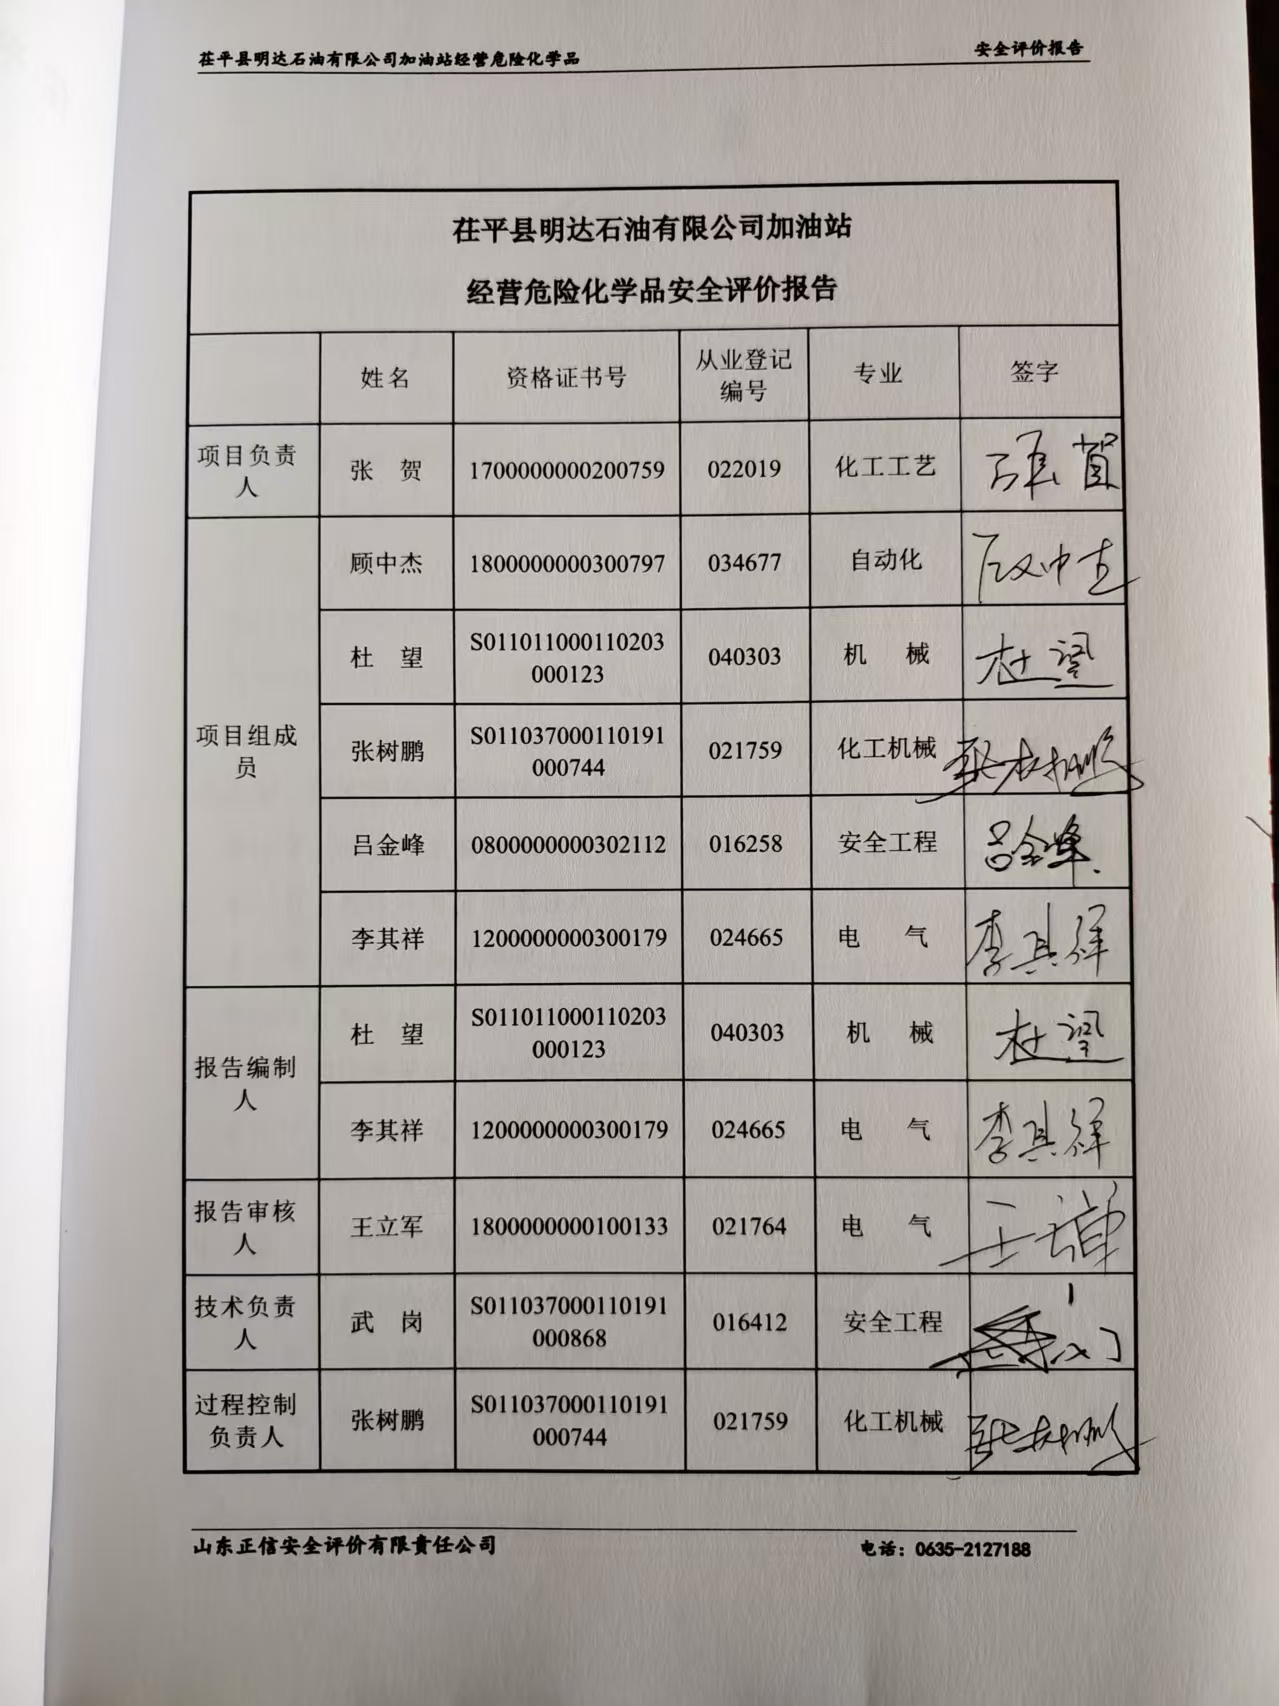 茌平县明达石油有限公司加油站经营危险化学品 安全评价报告
茌平县明达石油有限公司加油站
经营危险化学品安全评价报告
姓名 资格证书号 从业登记编号 专业 签字
项目负责人 张 贺 1700000000200759 022019 化工工艺 张贺
项目组成员
顾中杰 1800000000300797 034677 自动化 顾中杰
杜 望 S011011000110203000123 040303 机 械 杜望
张树鹏 S011037000110191000744 021759 化工机械 张树鹏
吕金峰 0800000000302112 016258 安全工程 吕金峰
李其祥 1200000000300179 024665 电 气 李其祥
报告编制人
杜 望 S011011000110203000123 040303 机 械 杜望
李其祥 1200000000300179 024665 电 气 李其祥
报告审核人 王立军 1800000000100133 021764 电 气
技术负责人 武 岗 S011037000110191000868 016412 安全工程
过程控制负责人 张树鹏 S011037000110191000744 021759 化工机械 张树鹏
山东正信安全评价有限责任公司 电话：0635-2127188